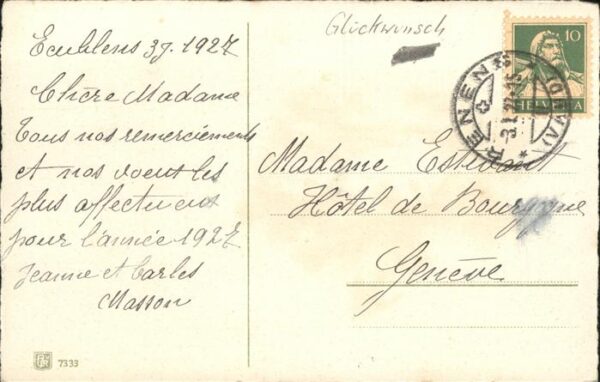 Glückwunsch
Ecublens 3 J. 1927
Chère Madame
Tous nos remerciements
et nos voeux les
plus affectueux
pour l'année 1927
Jeanne et Carles
Masson
10
HELVETIA
RENENS
Madame
Hôtel de Bourgogne
Genève
7333